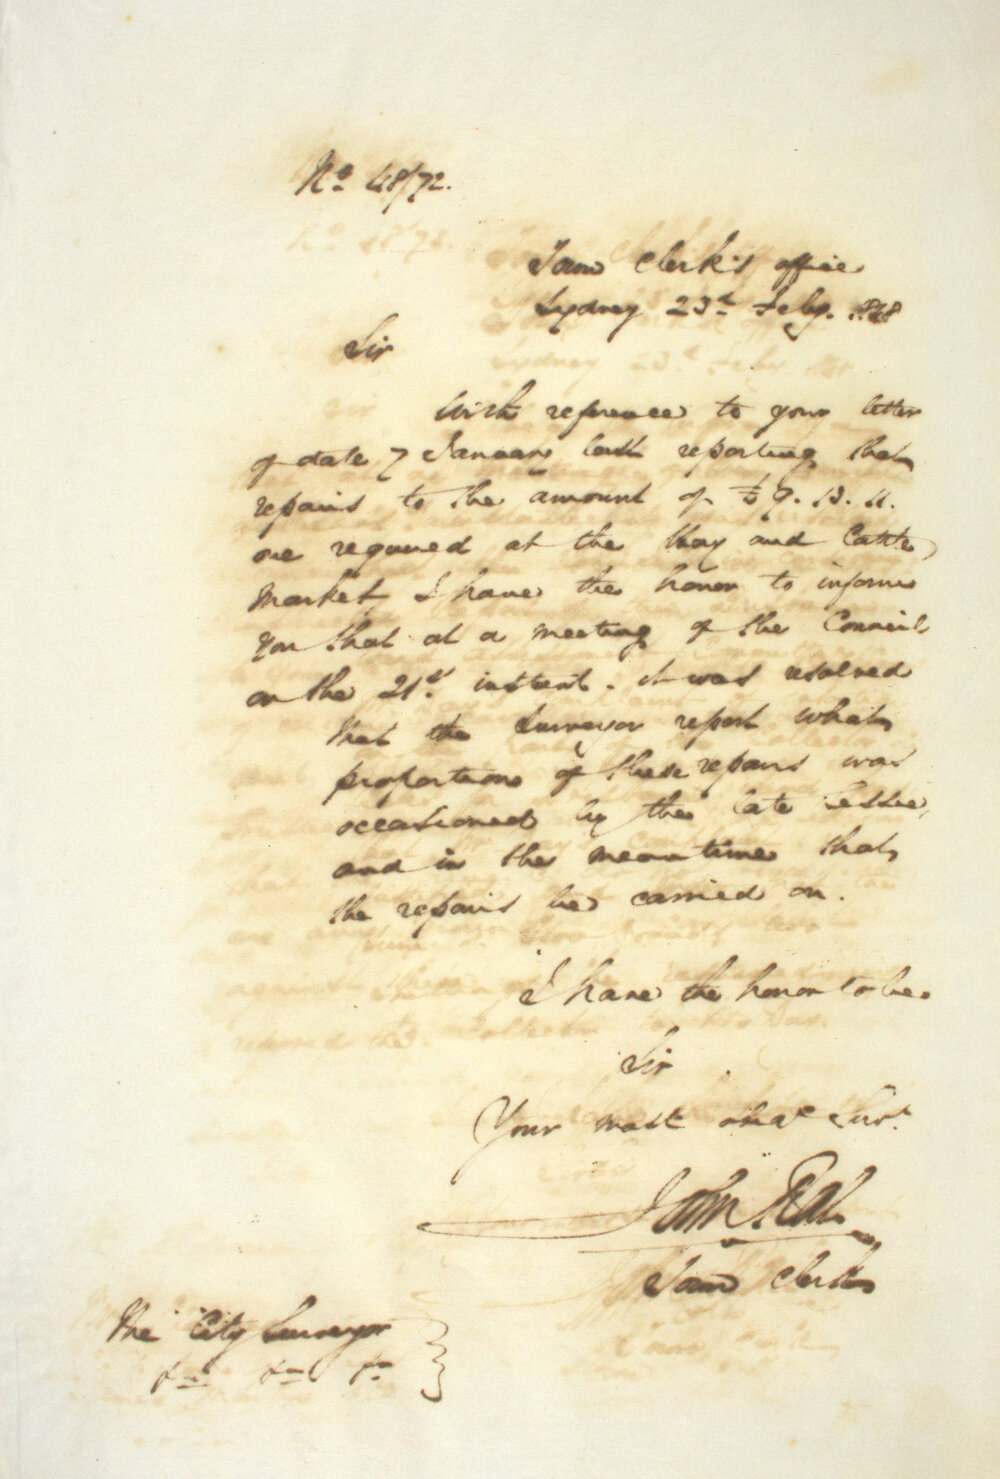 No. 48/72.
Town Clerk's Office
Sydney 23d Feby. 1848
Sir
With reference to your letter
of date 7 January last reporting that
repairs to the amount of £9. 13. 11.
are required at the Hay and Cattle
Market, I have the honor to inform
you that at a meeting of the Council
on the 21st instant. it was resolved
that the Surveyor report what
proportion of these repairs was
occasioned by the late lessee,
and in the meantime that
the repairs be carried on.
I have the honor to be.
Sir
Your most obdt Servt
John Rae
Town Clerk
The City Surveyor
&c &c &c